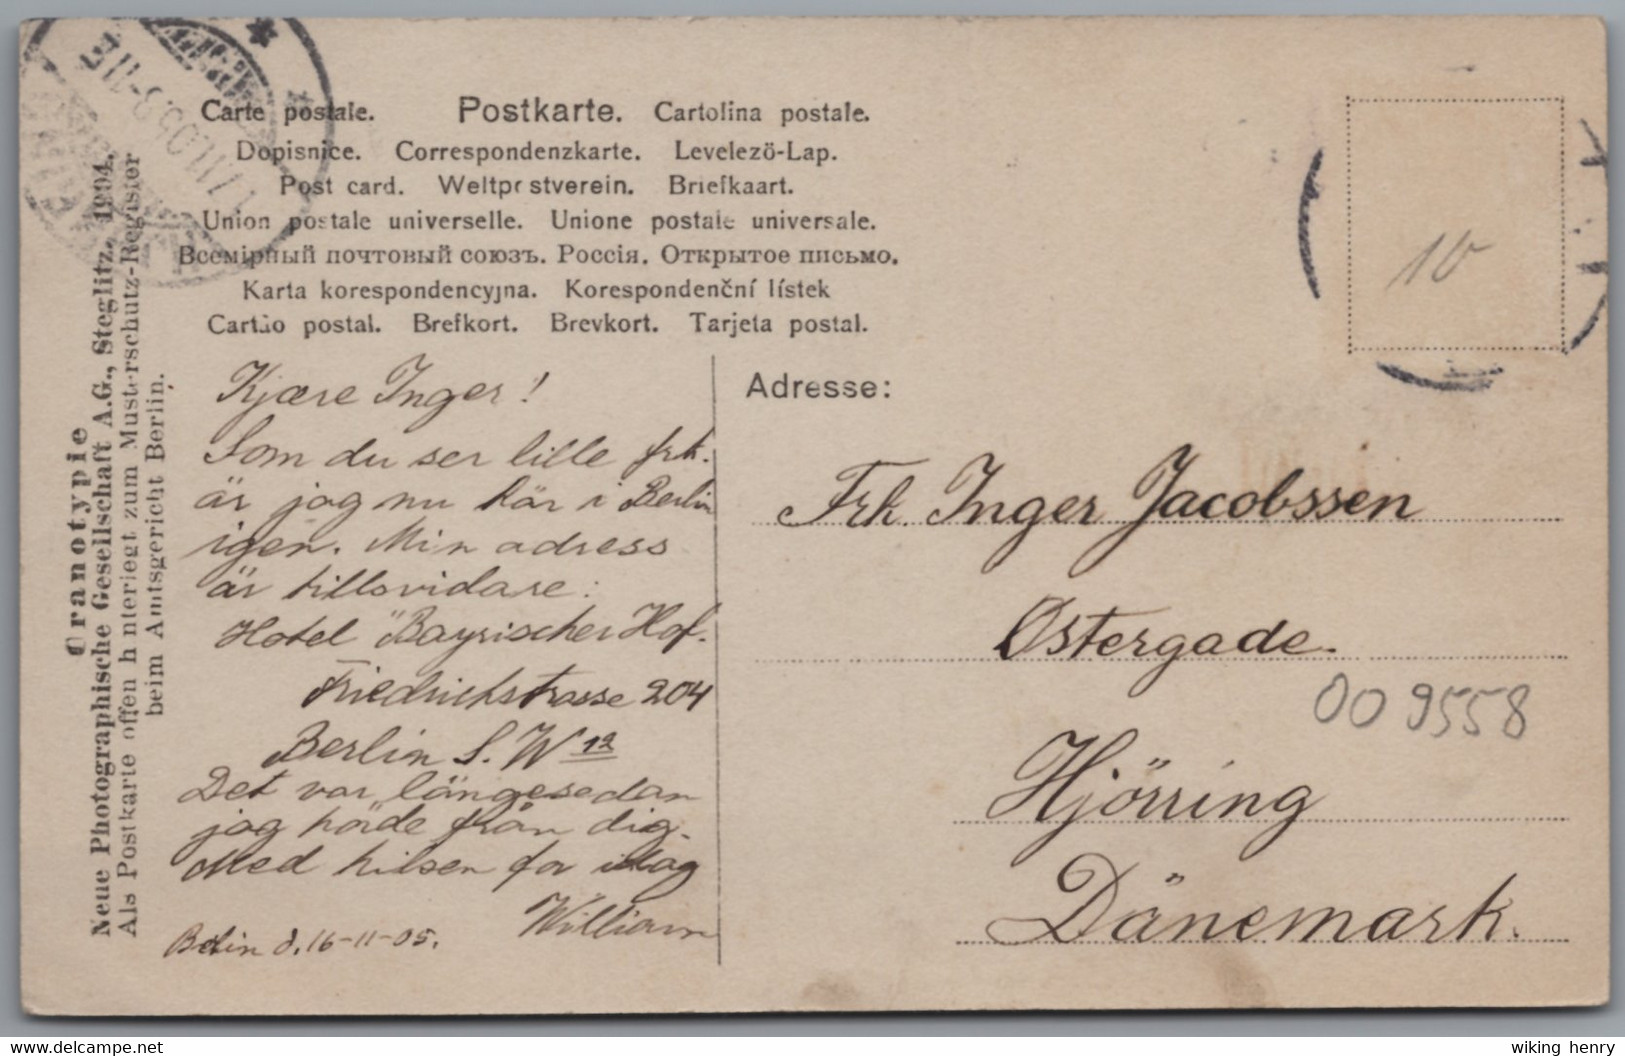 Carte postale. Postkarte. Cartolina postale.
Dopisnice. Correspondenzkarte. Levelező-Lap.
Post card. Weltpostverein. Briefkaart.
Union postale universelle. Unione postale universale.
Всемірный почтовый союзъ. Россія. Открытое письмо.
Karta korespondencyjna. Korespondenční lístek
Cartão postal. Brefkort. Brevkort. Tarjeta postal.
Oranotypie
Neue Photographische Gesellschaft A.G., Steglitz. 1904.
Als Postkarte offen hinterlegt zum Musterschutz-Register
beim Amtsgericht Berlin.
Kjære Inger!
Som du ser lille frk.
är jag nu här i Berlin
igen. Min adress
är tillsvidare:
Hotel "Bayrischer Hof.
Friedrichstrasse 204
Berlin S.W 12
Det var längesedan
jag hörde från dig.
Med hilsen for idag
William
Berlin d. 16-11-05.
Adresse:
Frk. Inger Jacobssen
Østergade.
Hjörring
Dänemark.
10
009558
www.delcampe.net
wiking henry